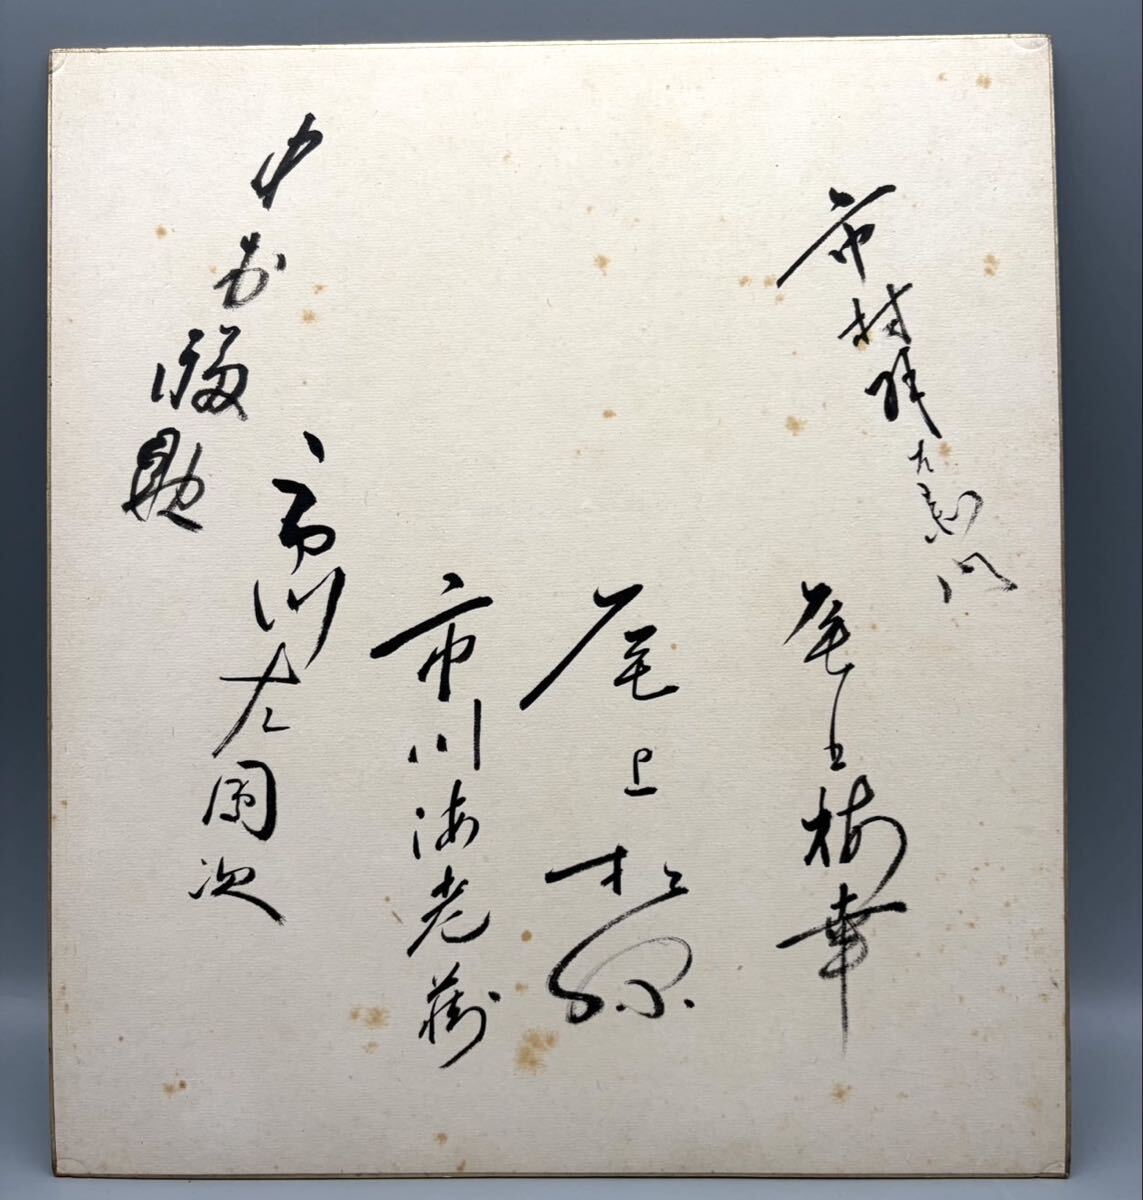 市村羽左衛門
尾上梅幸
尾上松緑
市川海老蔵
市川左團次
中村福助